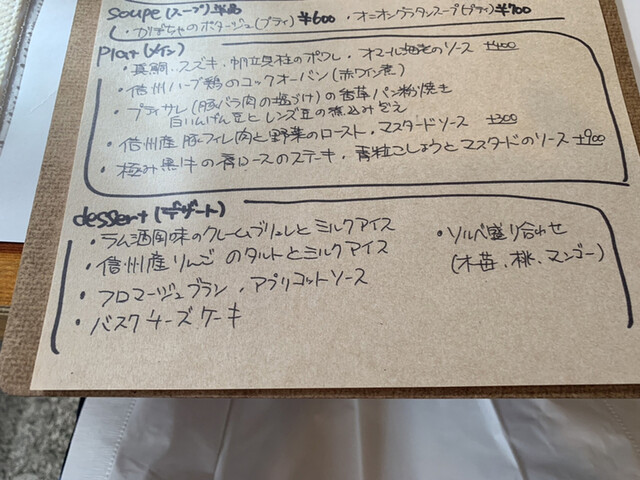 soupe (スープ) 単品
・かぼちゃのポタージュ(プティ) ¥600 ・オニオングラタンスープ(プティ) ¥700
plat (メイン)
・真鯛、スズキ、帆立貝柱のポワレ、オマール海老のソース +400
・信州ハーブ鶏のコックオーバン(赤ワイン煮)
・プティサレ(豚バラ肉の塩づけ)の香草パン粉焼き
白いんげん豆とレンズ豆の煮込み添え
・信州産豚フィレ肉と野菜のロースト、マスタードソース +300
・極み黒牛の肩ロースのステーキ、青粒こしょうとマスタードのソース +900
dessert (デザート)
・ラム酒風味のクレームブリュレとミルクアイス
・信州産りんごのタルトとミルクアイス
・フロマージュブラン、アプリコットソース
・バスクチーズケーキ
・ソルベ盛り合わせ
(木苺、桃、マンゴー)